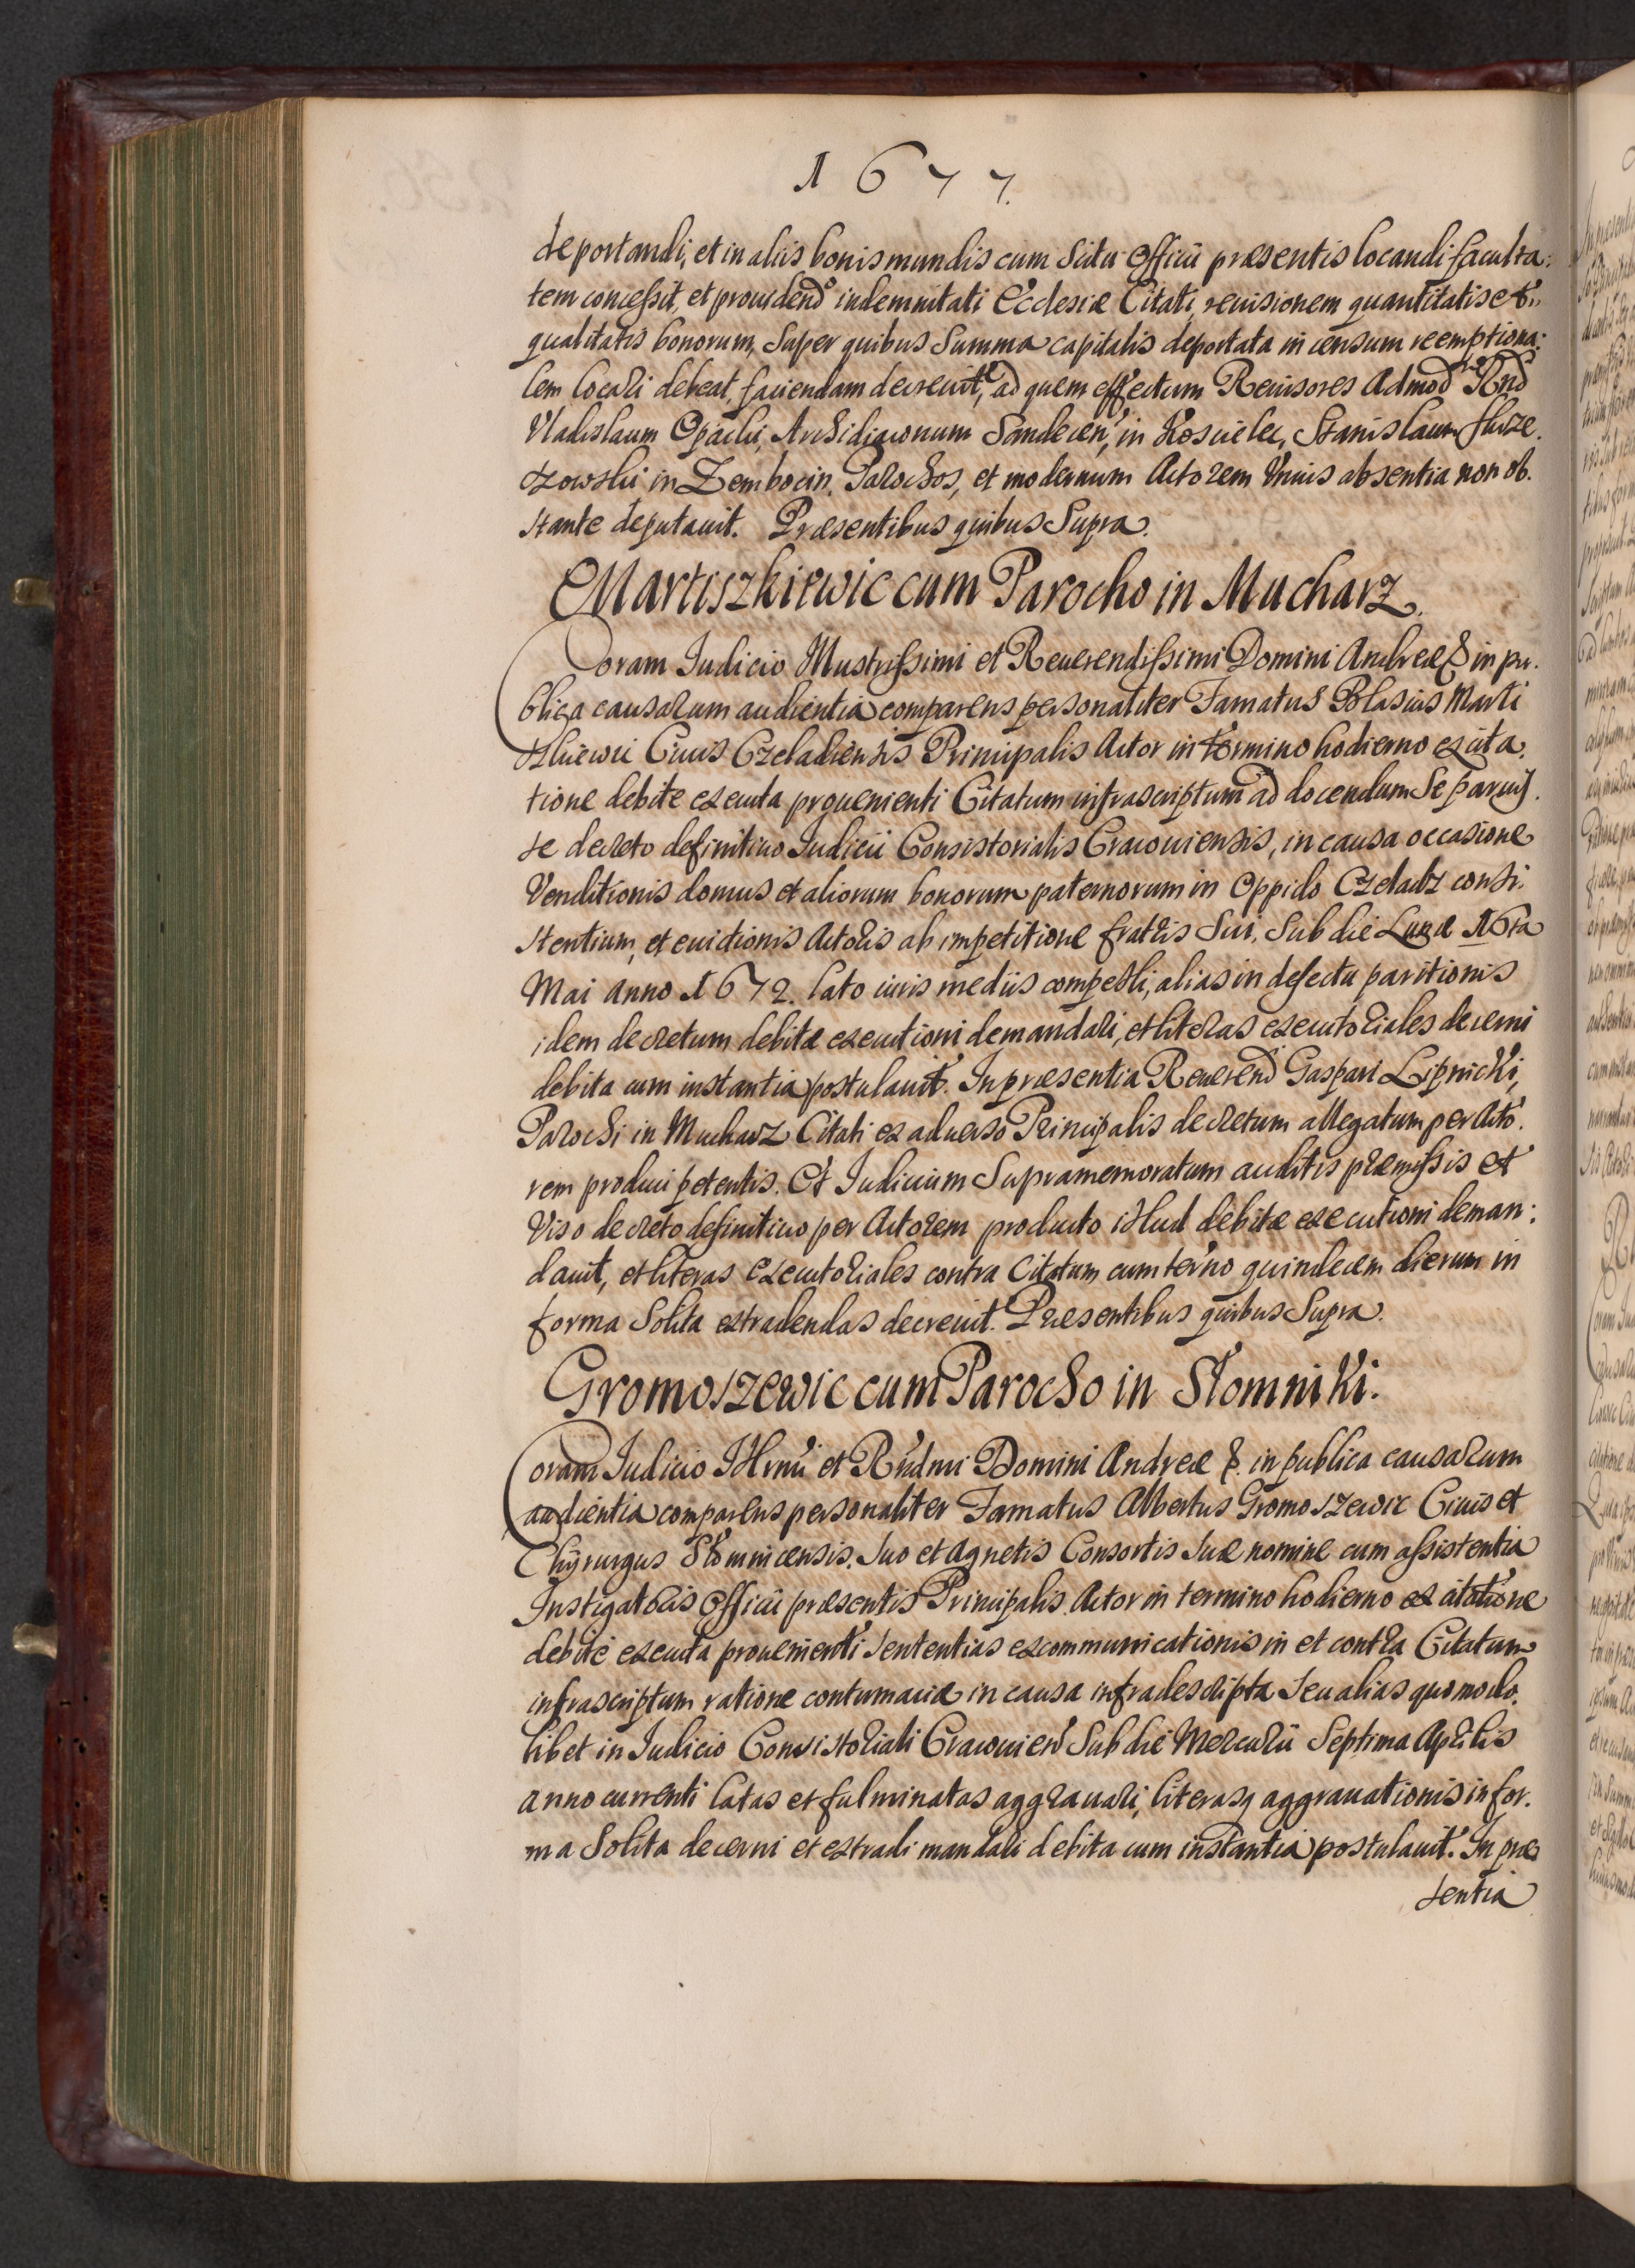 1677.
deportandi, et in aliis bonis mundis cum Scitu Officii præsentis locandi faculta:
tem concessit, et prouidendo indemnitati Ecclesiæ Citati, reuisionem quantitatis et
qualitatis bonorum, super quibus Summa capitalis deportata in censum reemptiona:
lem locari debeat, faciendam decreuit, ad quem effectum Reuisores Admod Rnd
Vladislaum Opacki, Archidiaconum Sandecen, in Koscielec, Stanislaum
in Zembocin, Parochos, et modernum Actorem Vnius absentia non ob.
stante deputauit. Præsentibus quibus Supra.
Martiszkiewic cum Parocho in Mucharz.
Coram Iudicio Illustrissimi et Reuerendissimi Domini Andreæ & in pu.
blica causarum audientia comparens personaliter Famatus Blasius Marti
szkiewic Ciuis Czeladiensis Principalis Actor in termino hodierno ex cita.
tione debite executa proueniente Citatum infrascriptum ad docendum Se paruis.
se decreto definitiuo Iudicii Consistorialis Cracouiensis, in causa occasione
Venditionis domus et aliorum bonorum paternorum in Oppido Czeladz consi.
stentium, et euictionis Actoris ab impetitione fratris Sui, Sub die Lunæ 16ta
Mai anno 1672. lato iuris mediis compelli, alias in defectu paritionis
idem decretum debitæ executioni demandari, et literas executoriales decerni
debita cum instantia postulauit. In præsentia Reuerend Gaspari Lipnicki,
Parochi in Mucharz Citati ex aduerso Principalis decretum allegatum per Acto.
rem produci petentis. Et Iudicium Supramemoratum auditis præmissis et
Viso decreto definitiuo per Actorem producto illud debitæ executioni deman:
dauit, et literas executoriales contra Citatum cum terno quindecem dierum in
forma Solita extradendas decreuit. Præsentibus quibus Supra.
Gromoszewic cum Parocho in Słomniki.
Coram Iudicio Illrmi et Rndmi Domini Andreæ &. in publica causarum
audientia comparens personaliter Famatus Albertus Gromoszewic Ciuis et
Chyrurgus Słomnicensis, suo et Agnetis Consortis suæ nomine cum assistentia
Instigatoris Officii præsentis Principalis Actor in termino hodierno ex citatione
debite executa prouenienti sententias excommunicationis in et contra Citatum
infrascriptum ratione contumaciæ in causa infradescripta seu alias quomodo.
libet in Iudicio Consistoriali Cracouien Sub die Mercurii Septima Aprilis
anno currenti latas et fulminatas aggrauari, literasq aggrauationis in for.
ma Solita decerni et extradi mandari debita cum instantia postulauit. In præ
sentia